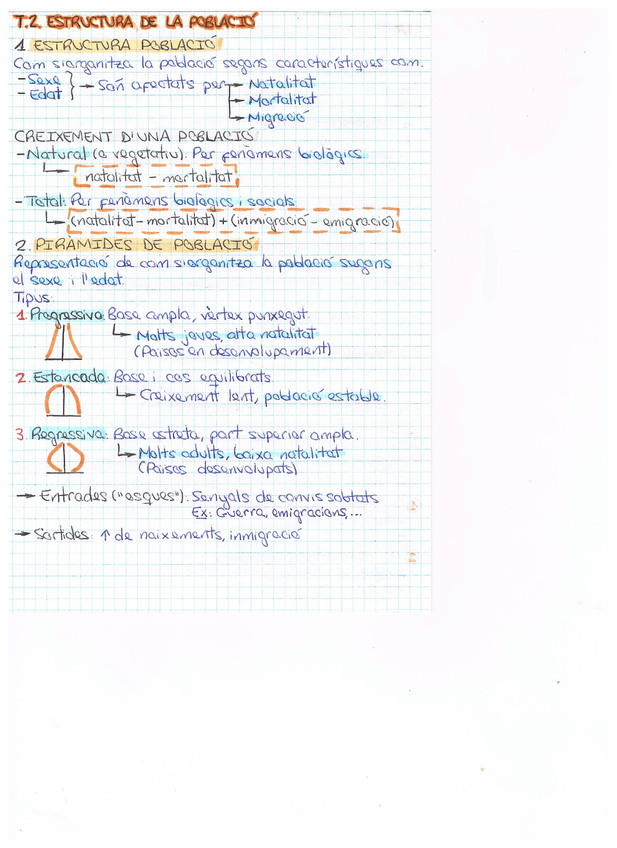 T.2. ESTRUCTURA DE LA POBLACIÓ
1. ESTRUCTURA POBLACIÓ
Com s'organitza la població segons característiques com:
- Sexe
- Edat } → Són afectats per → Natalitat
→ Mortalitat
→ Migració
CREIXEMENT D'UNA POBLACIÓ
- Natural (o vegetatiu): Per fenòmens biològics.
natalitat - mortalitat
- Total: Per fenòmens biològics i socials
(natalitat - mortalitat) + (inmigració - emigració)
2. PIRÀMIDES DE POBLACIÓ
Representació de com s'organitza la població segons
el sexe i l'edat.
Tipus:
1. Progressiva: Base ampla, vèrtex punxegut.
Molts joves, alta natalitat
(Països en desenvolupament)
2. Estancada: Base i cos equilibrats.
Creixement lent, població estable.
3. Regressiva: Base estreta, part superior ampla.
Molts adults, baixa natalitat
(Països desenvolupats)
→ Entrades ("osques"): Senyals de canvis sobtats
Ex: Guerra, emigracions,...
→ Sortides: ↑ de naixements, inmigració